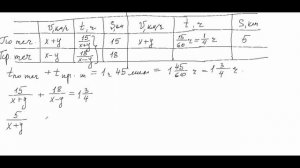 V, км/ч t, ч S, км V, км/ч t, ч S, км
По теч. x+y 15/x+y 15 x+y 15/60 ч = 1/4 ч 5
Пр. теч. x-y 18/x-y 18
t по теч. + t пр. т. = 1 ч 45 мин = 1 45/60 ч = 1 3/4 ч
15/x+y + 18/x-y = 1 3/4
5/x+y =